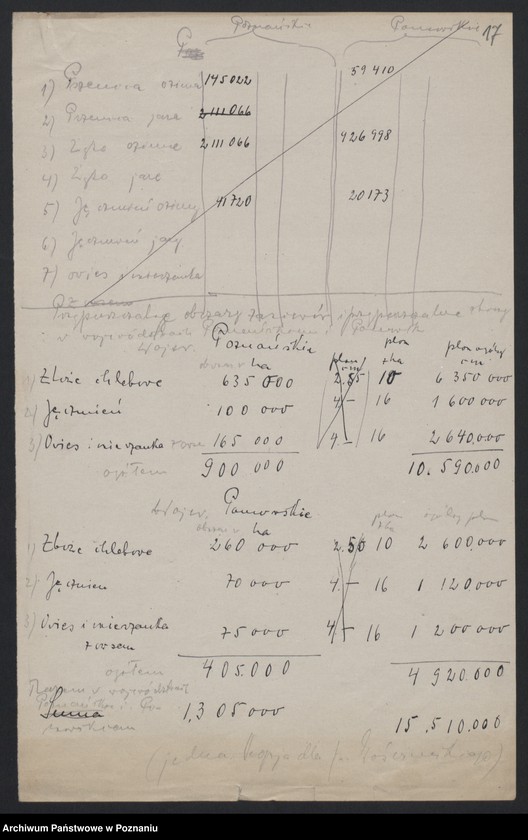 17
Poznańskie Pomorskie
1) Pszenica ozima 145022 59 410
2) Pszenica jara 2 111 066
3) Żyto ozime 2 111 066 926 998
4) Żyto jare
5) Jęczmień ozimy 41720 20173
6) Jęczmień jary
7) Owies i mieszanka
Przypuszczalne obszary zasiewów i przypuszczalne zbiory
w województwach Poznańskiem i Pomorsk
Wojew. Poznańskie
obszar w ha plon z ha plon ogólny
1) Zboże chlebowe 635 000 2.55 10 6 350 000
2) Jęczmień 100 000 4.- 16 1 600 000
3) Owies i mieszanka 165 000 4.- 16 2 640,000
ogółem 900 000 10.590.000
Wojew. Pomorskie
obszar w ha plon z ha ogólny plon
1) Zboże chlebowe 260 000 2.50 10 2 600.000
2) Jęczmień 70 000 4.- 16 1 120.000
3) Owies i mieszanka 75 000 4.- 16 1 200 000
z owsem
ogółem 405.000 4 920.000
Razem w województwach
Poznańskim i Po-
Suma 1,305 000
morskiem 15.510.000
(jedna kopja dla p.
Archiwum Państwowe w Poznaniu